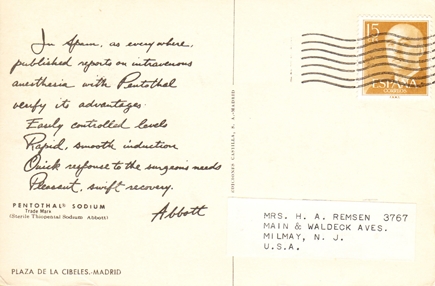 In Spain, as everywhere,
published reports on intravenous
anesthesia with Pentothal
verify its advantages.
Easily controlled levels
Rapid, smooth induction
Quick response to the surgeon's needs
Pleasant, swift recovery.
Abbott
PENTOTHAL® SODIUM
Trade Mark
(Sterile Thiopental Sodium Abbott)
PLAZA DE LA CIBELES.-MADRID
EDICIONES CASTILLA, S. A.-MADRID
15
ESPAÑA
CORREOS
MRS. H. A. REMSEN 3767
MAIN & WALDECK AVES.
MILMAY, N. J.
U.S.A.